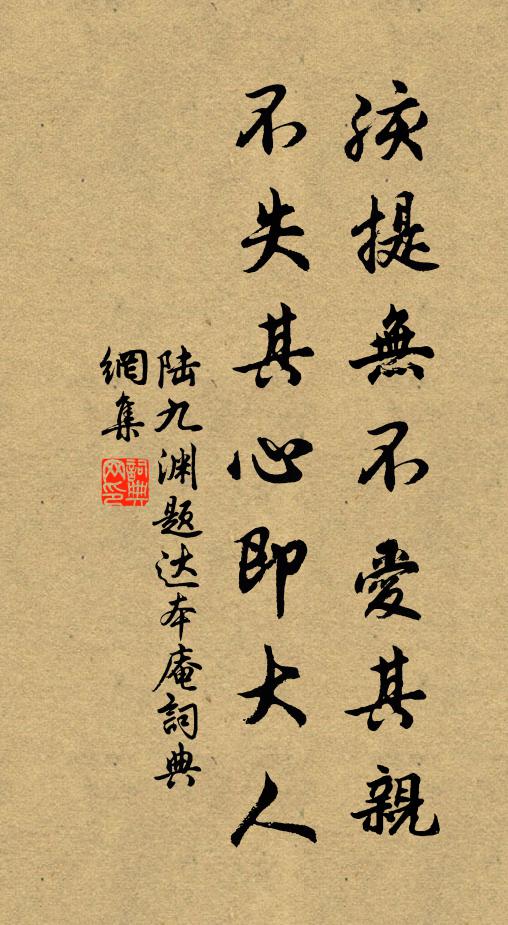 孩提無不愛其親
不失其心即大人
陆九渊题达本庵詞典
網集
詞典
网印